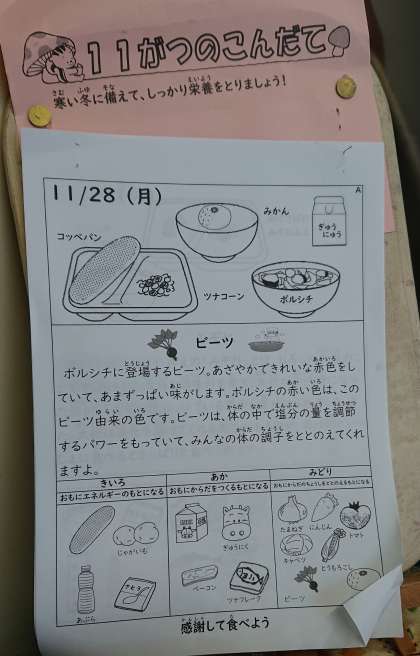 11がつのこんだて
寒い冬に備えて、しっかり栄養をとりましょう！
11/28（月）
A
みかん
ぎゅう
にゅう
コッペパン
ツナコーン
ボルシチ
ビーツ
ボルシチに登場するビーツ。あざやかできれいな赤色をし
ていて、あまずっぱい味がします。ボルシチの赤い色は、この
ビーツ由来の色です。ビーツは、体の中で塩分の量を調節
するパワーをもっていて、みんなの体の調子をととのえてくれ
ますよ。
きいろ
おもにエネルギーのもとになる
あか
おもにからだをつくるもとになる
みどり
おもにからだのちょうしをととのえるもとになる
じゃがいも
あぶら
ぎゅうにく
ベーコン
ツナフレーク
たまねぎ
にんじん
トマト
キャベツ
とうもろこし
ビーツ
感謝して食べよう